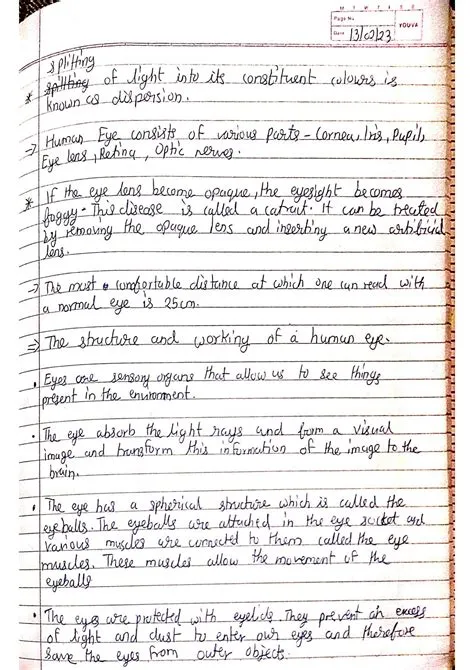 M T W T F S S
Page No.
YOUVA
Date 13/02/23
splitting
* spitting of light into its constituent colours is
known as dispersion.
=> Human Eye consists of various parts - Cornea, Iris, Pupil,
Eye lens, Retina, Optic nerves.
* If the eye lens become opaque, the eyesight becomes
foggy - This disease is called a catrait. It can be treated
by removing the opaque lens and inserting a new artificial
lens.
-> The most comfortable distance at which one can read with
a normal eye is 25cm.
=> The structure and working of a human eye.
• Eyes are sensory organs that allow us to see things
present in the environment.
• The eye absorb the light rays and form a visual
image and transform this information of the image to the
brain.
• The eye has a spherical structure which is called the
eyeballs. The eyeballs are attached in the eye socket and
various muscles are connected to them called the eye
muscles. These muscles allow the movement of the
eyeballs
• The eyes are protected with eyelids. They prevent an excess
of light and dust to enter our eyes and therefore
save the eyes from outer objects.